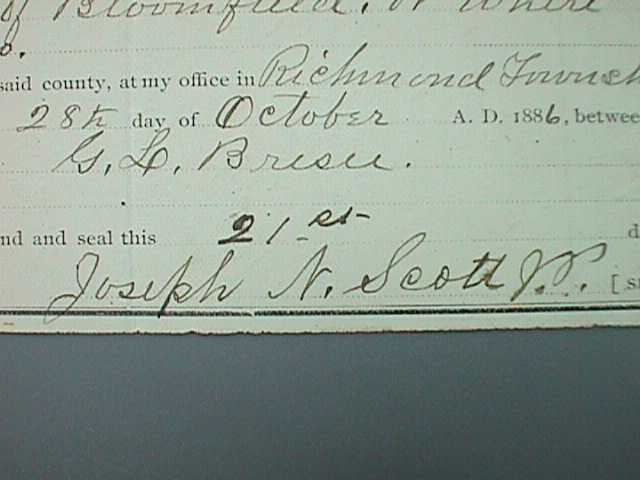 of Bloomfield. W where
o.
said county, at my office in Richmond Townsh
28th day of October A. D. 1886, betwee
G. L.
nd and seal this 21st d
Joseph N. Scott J.P. [s